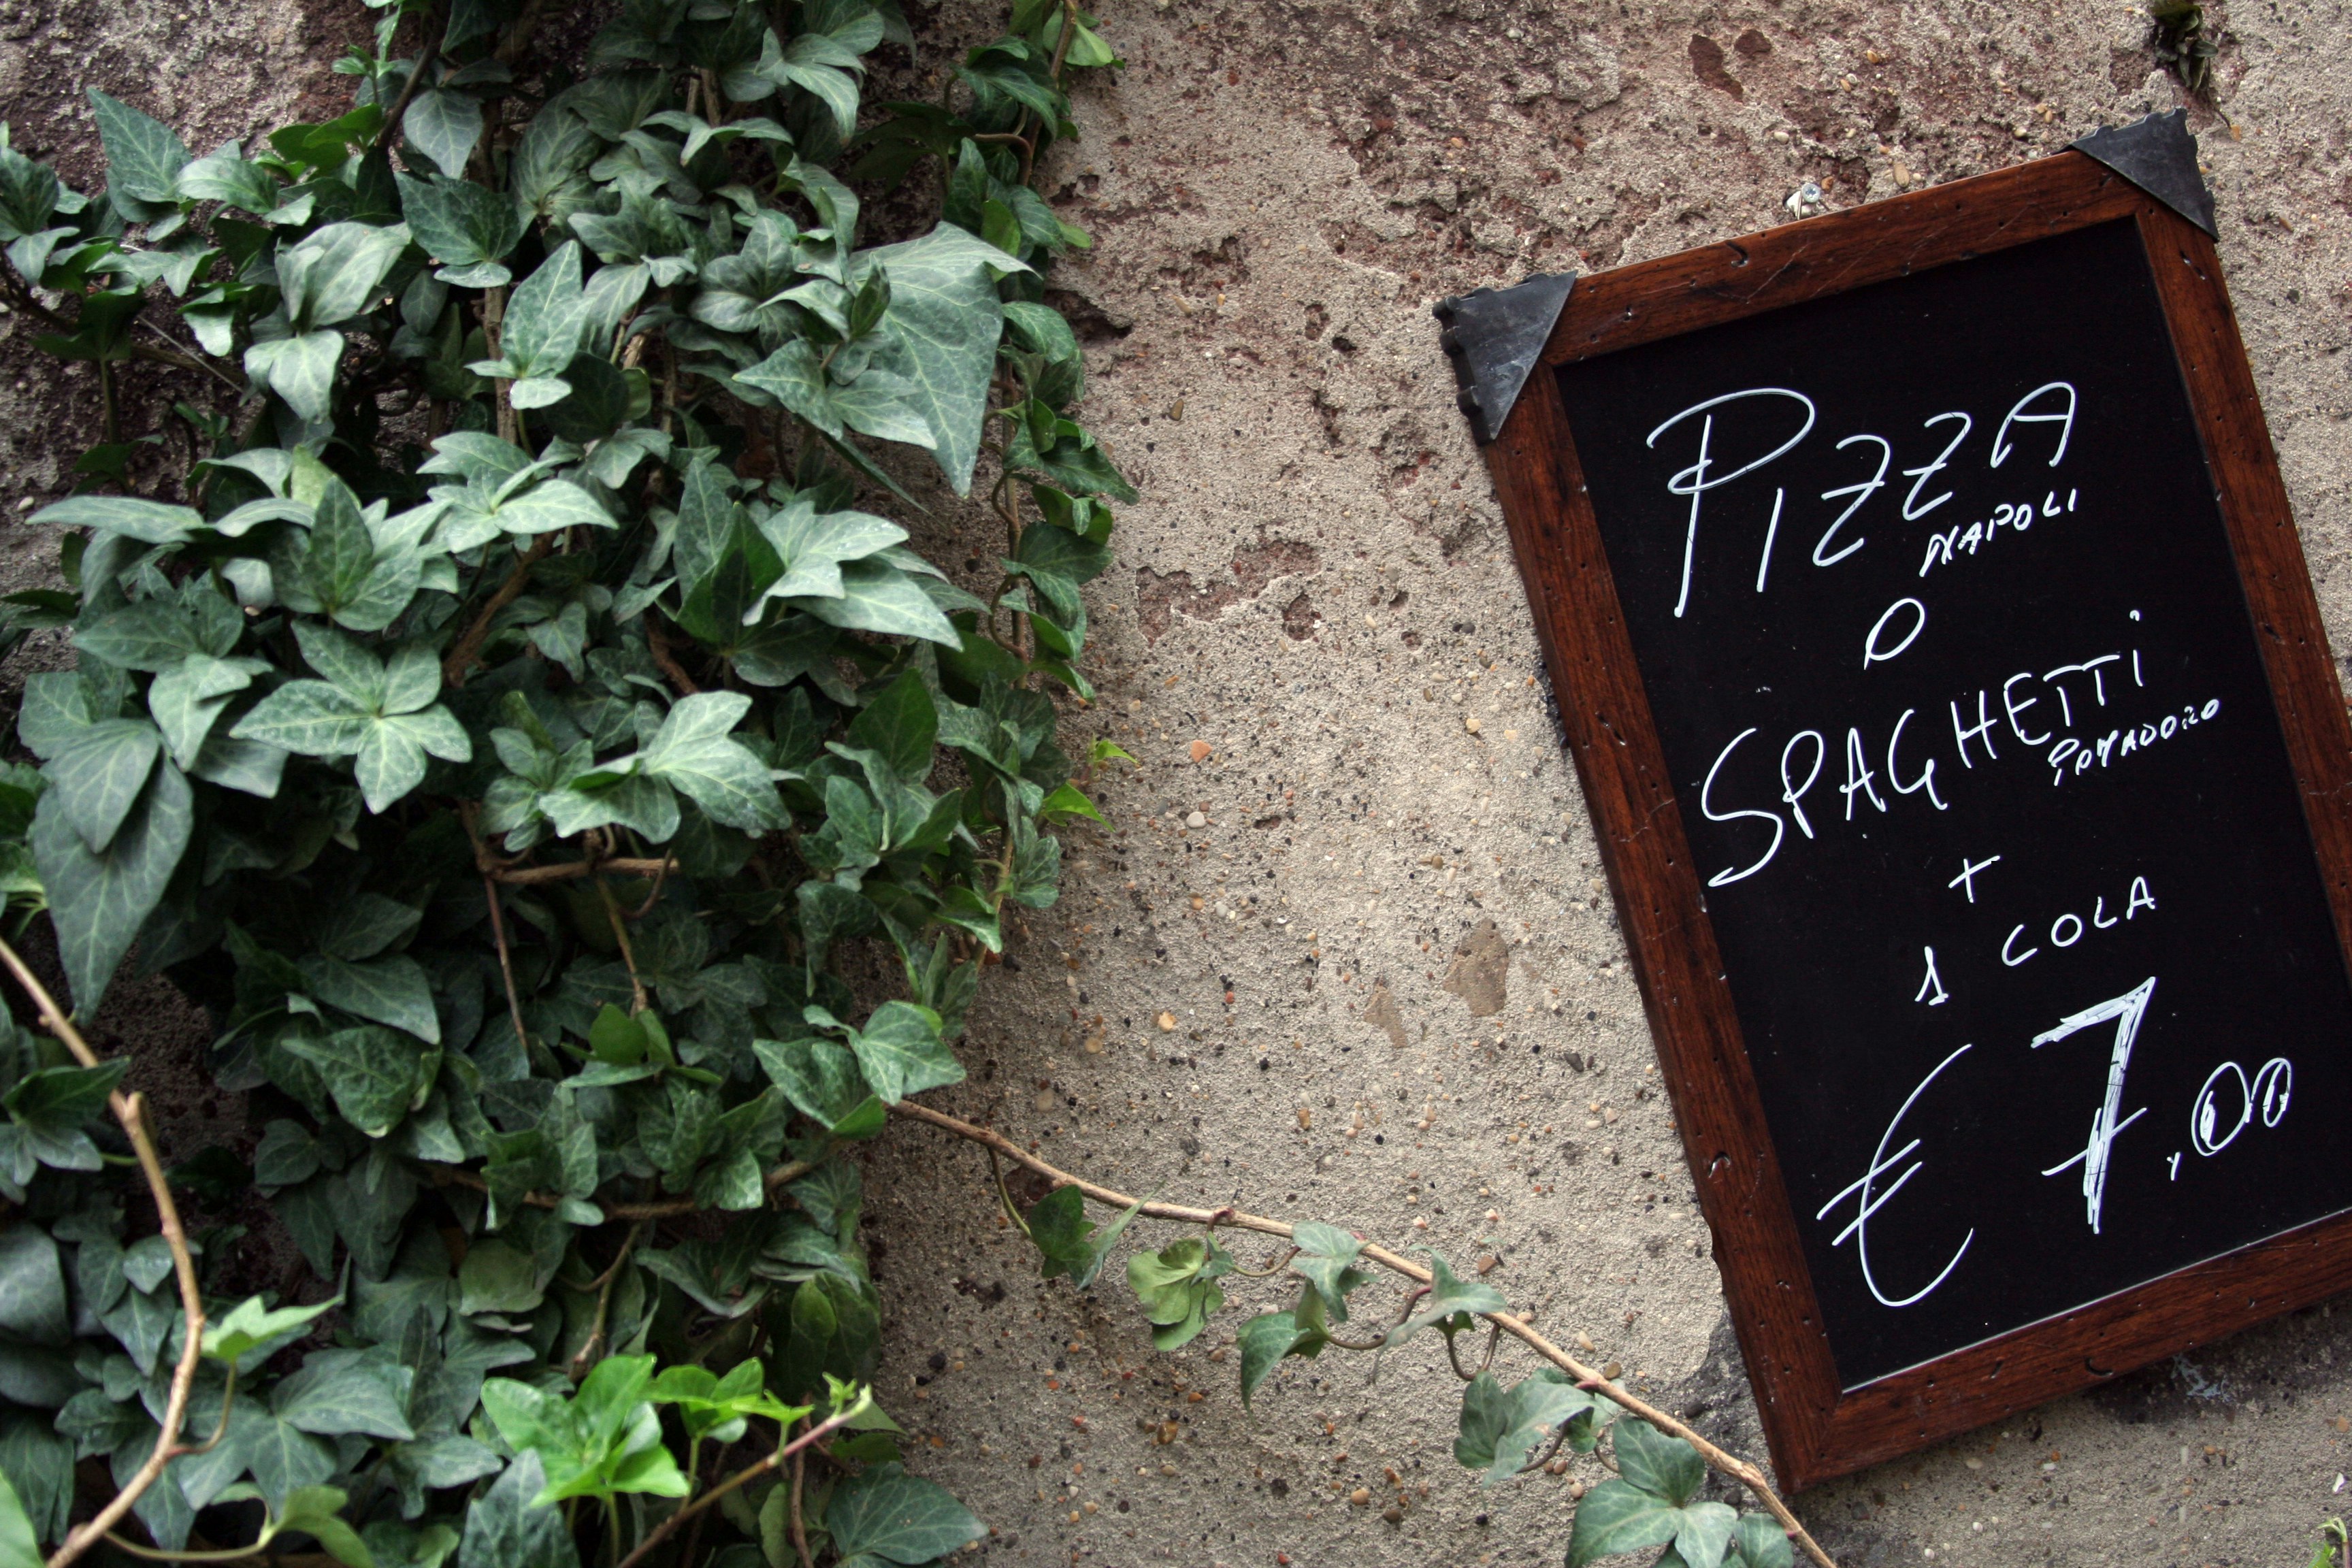 PIZZA
NAPOLI
O
SPAGHETTI
POMADORO
+
1 COLA
€ 7,00